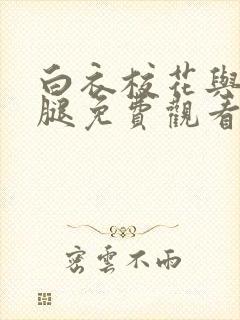 白衣校花與
腿免費觀看
密雲不雨